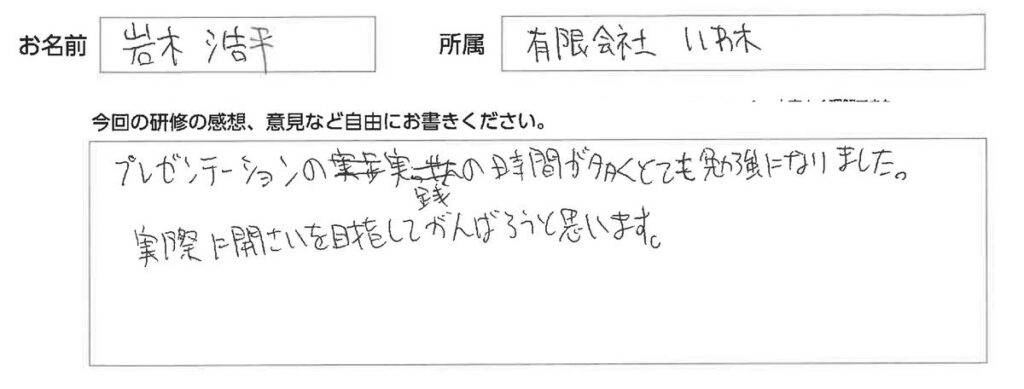 お名前 岩木 浩平 所属 有限会社 いわ木
今回の研修の感想、意見など自由にお書きください。
プレゼンテーションの実銭の時間が多くとても勉強になりました。
実際に開さいを目指してがんばろうと思います。